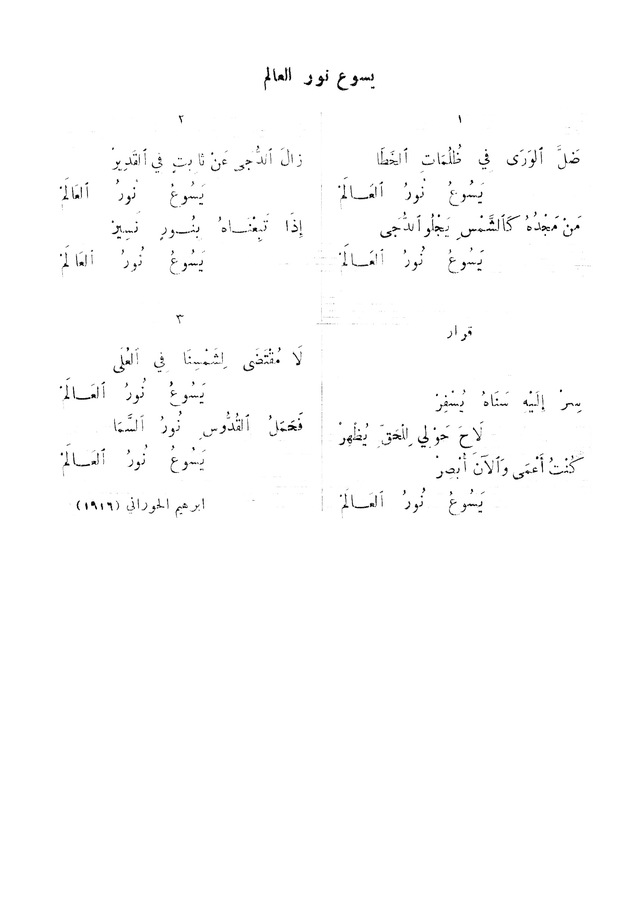 يسوع نور العالم
١
ضَلَّ ٱلوَرَى فِي ظُلُمَاتِ ٱلخَطَا
يَسُوعُ نُورُ ٱلعَـالَمْ
مَنْ مَجْدُهُ كَٱلشَّمْسِ يَجْلُو ٱلدُّجَى
يَسُوعُ نُورُ ٱلعَـالَمْ
قرار
سِرْ إِلَيْهِ سَنَاهُ يُسْفِرْ
لَاحَ حَوْلِي لِلحَقِّ يُظْهِرْ
كُنْتُ أَعْمَى وَٱلآنَ أُبْصِرْ
يَسُوعُ نُورُ ٱلعَـالَمْ
٢
زَالَ ٱلدُّجَى عَنْ ثَابِتٍ فِي ٱلقَدِيرْ
يَسُوعُ نُورُ ٱلعَالَمْ
إِذَا تَبِعْنَـاهُ بِنُـورٍ نَسِيرْ
يَسُوعُ نُورُ ٱلعَالَمْ
٣
لَا مُقْتَضَى لِشَمْسِنَا فِي ٱلعُلَى
يَسُوعُ نُورُ ٱلعَـالَمْ
فَحَمَلُ ٱلقُدُّوسِ نُورُ ٱلسَّمَا
يَسُوعُ نُورُ ٱلعَـالَمْ
ابرهيم الحوراني (١٩١٦)